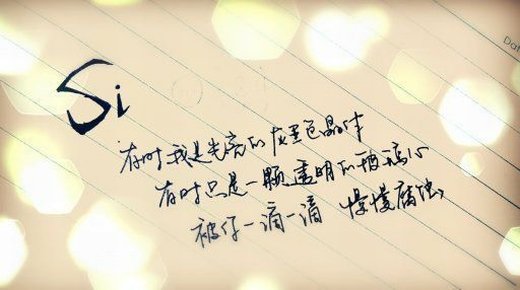 Si
有时我是光亮的灰黑色晶体
有时只是一颗透明的玻璃心
被你一滴一滴 慢慢腐蚀